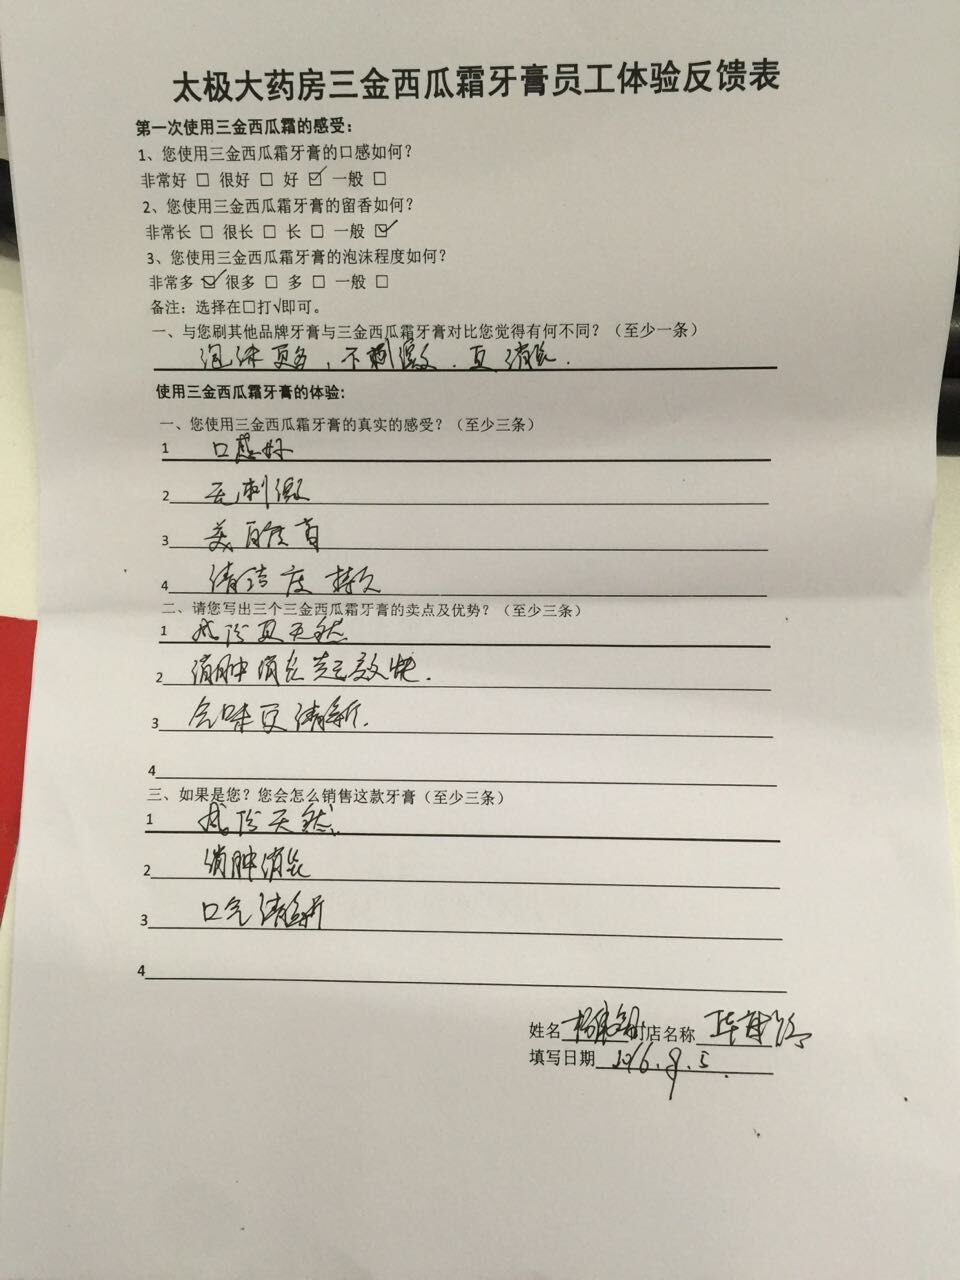 太极大药房三金西瓜霜牙膏员工体验反馈表
第一次使用三金西瓜霜的感受：
1、您使用三金西瓜霜牙膏的口感如何？
非常好 □ 很好 □ 好 ☑ 一般 □
2、您使用三金西瓜霜牙膏的留香如何？
非常长 □ 很长 □ 长 □ 一般 ☑
3、您使用三金西瓜霜牙膏的泡沫程度如何？
非常多 ☑ 很多 □ 多 □ 一般 □
备注：选择在□打√即可。
一、与您刷其他品牌牙膏与三金西瓜霜牙膏对比您觉得有何不同？（至少一条）
泡沫更多，不刺激．更消炎．
使用三金西瓜霜牙膏的体验:
一、您使用三金西瓜霜牙膏的真实的感受？（至少三条）
1 口感好
2 无刺激
3 美白
4 清洁度持久
二、请您写出三个三金西瓜霜牙膏的卖点及优势？（至少三条）
1 成份更天然
2 消肿消炎起效快．
3 口味更清新．
4
三、如果是您？您会怎么销售这款牙膏（至少三条）
1 成份天然．
2 消肿消炎
3 口气清新
4
姓名 门店名称
填写日期 2016.9.5.